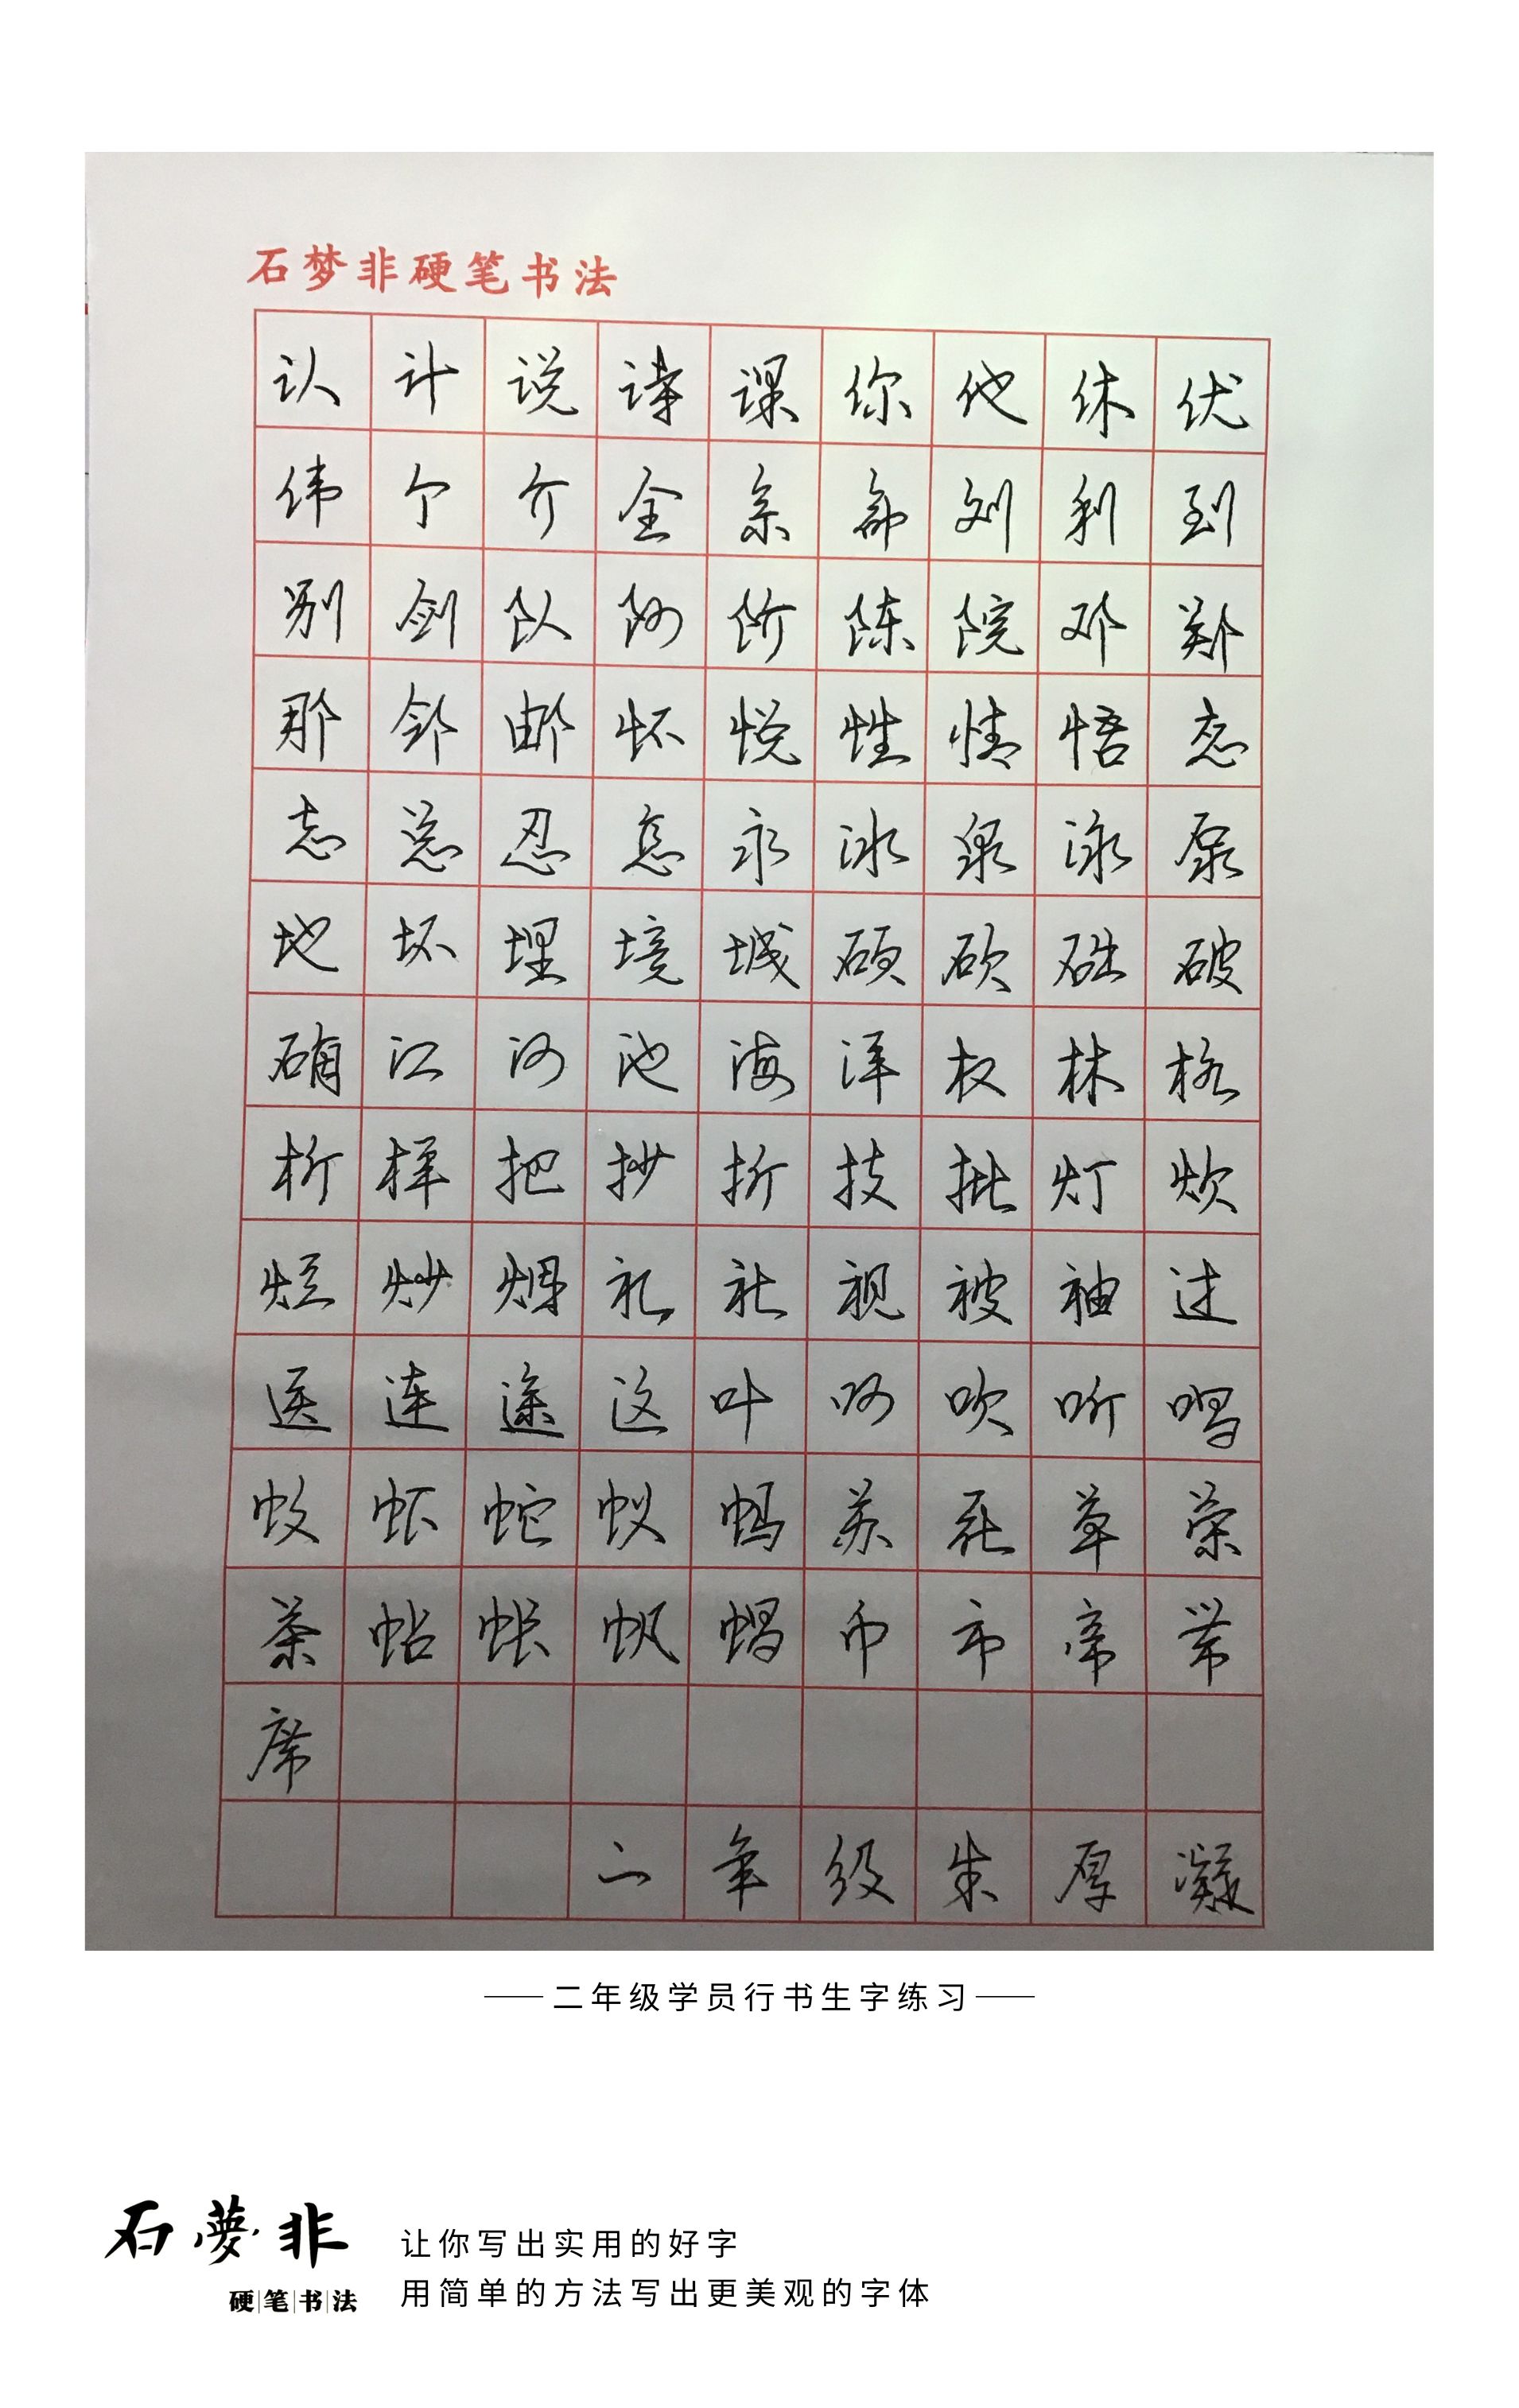 石梦非硬笔书法
认计说诗课你他休伏
伟个介全余部刘利到
别剑队阿阶陈院邓郑
那邻邮怀悦性情悟态
志总忍永冰泉泳泵
地坏埋境城硕砍础破
确江河池海洋权林格
析样把抄折技批灯炊
烂炒烟礼社视被袖过
送连途这叶呵吹听
蚊虾蛇蚁蚂苏花草荣
茶帖帐帆帽币市帝带
席
二年级朱厚凝
二年级学员行书生字练习
石夢非
硬笔书法
让你写出实用的好字
用简单的方法写出更美观的字体